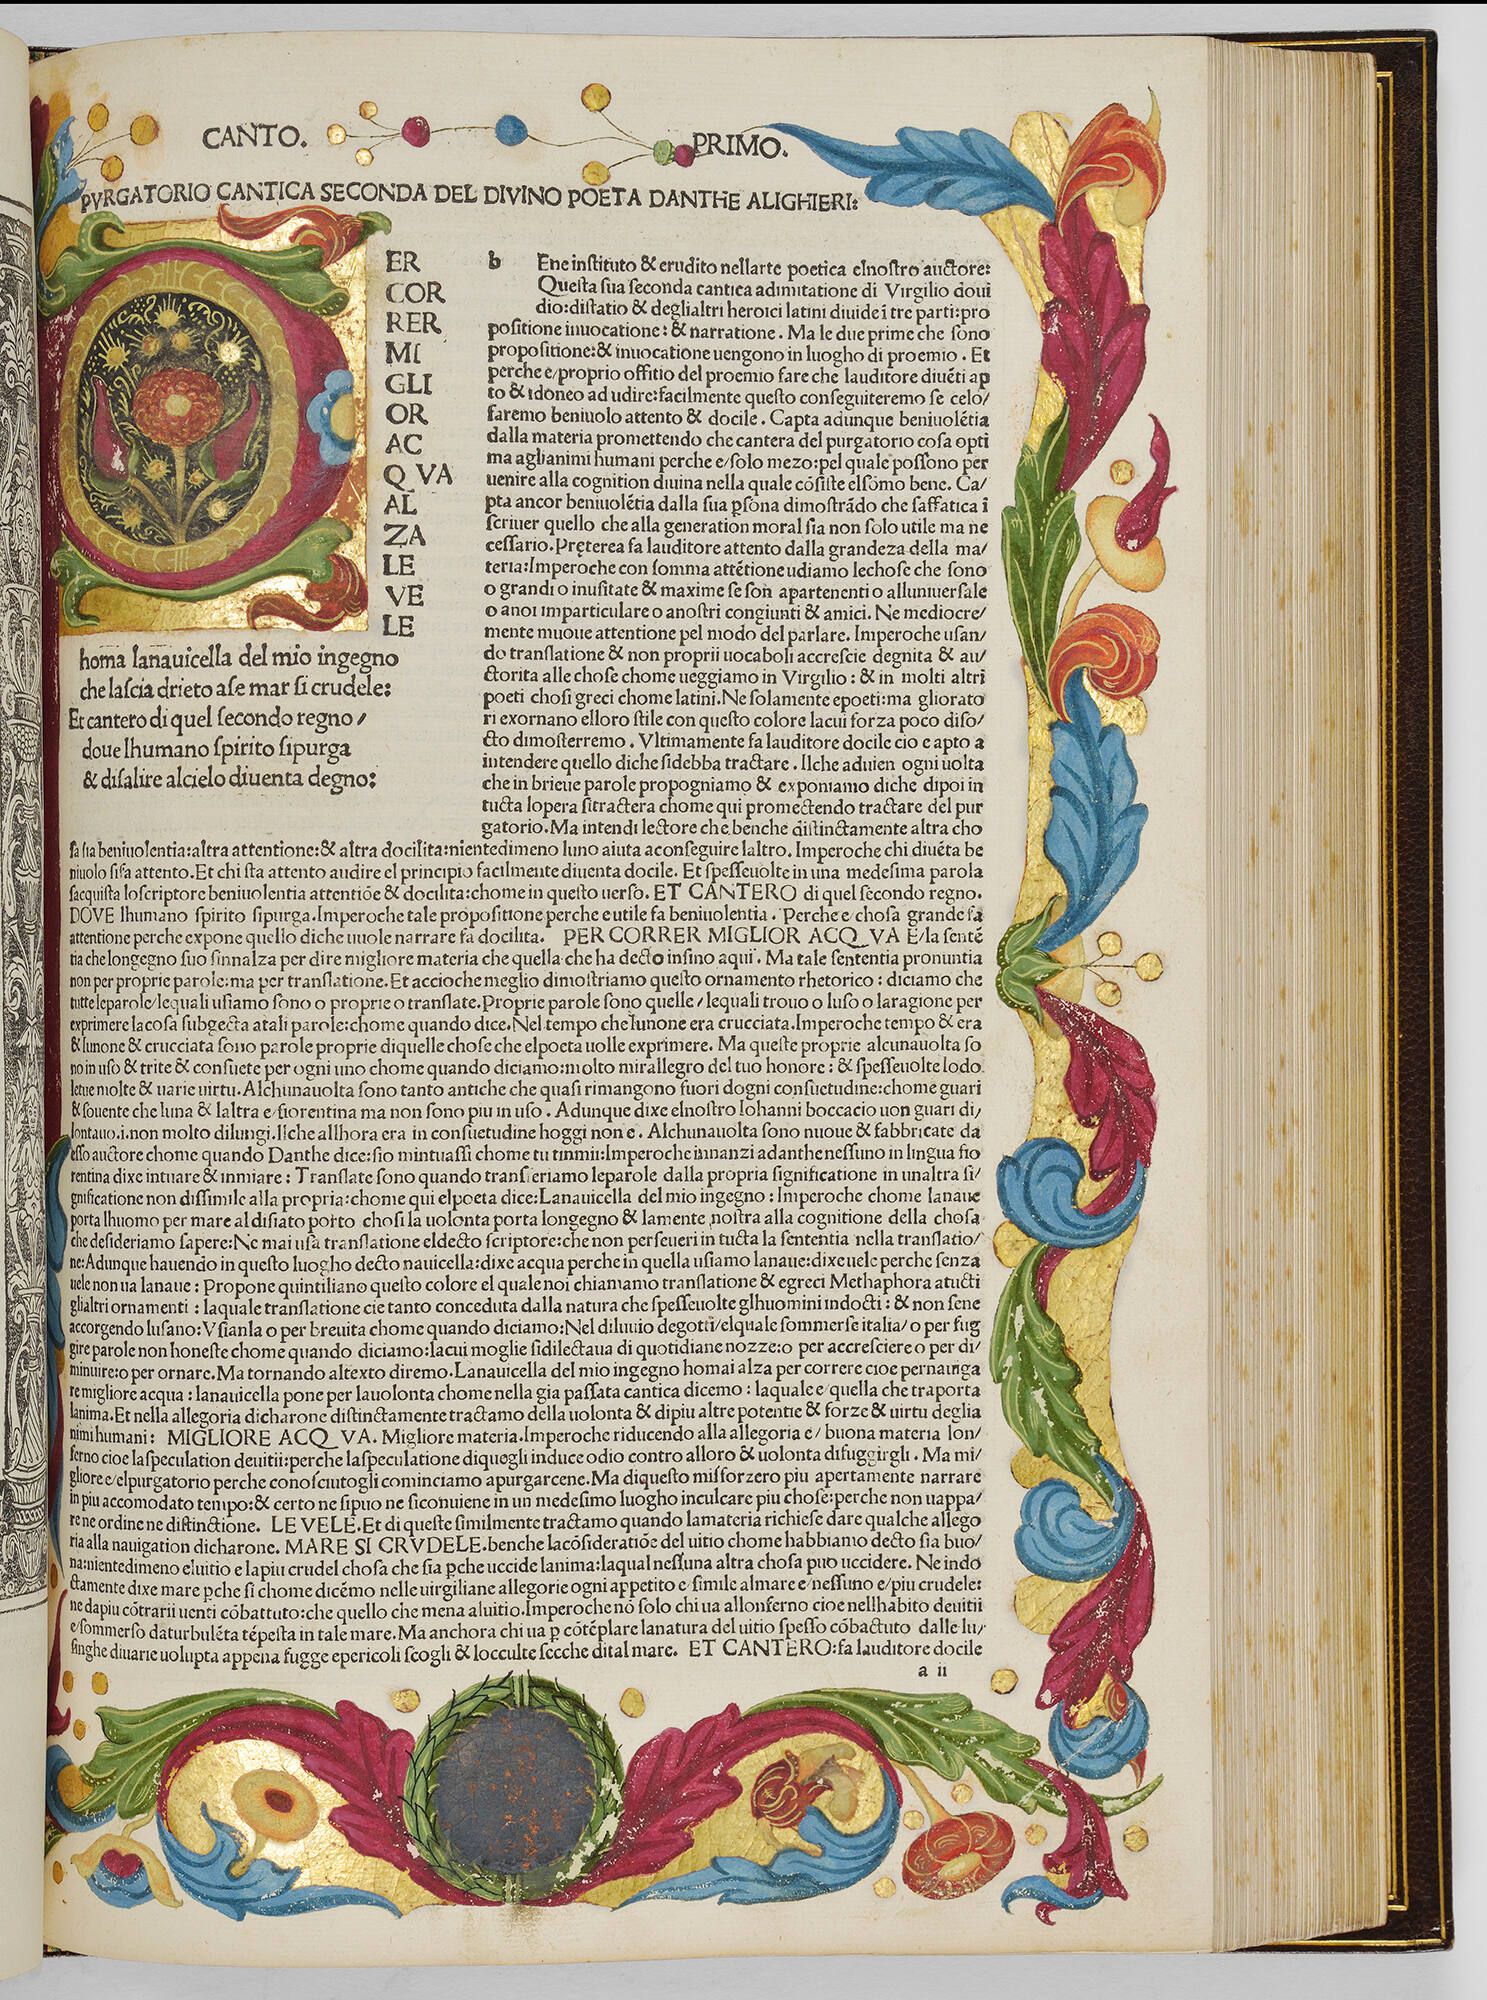 CANTO. PRIMO.
PVRGATORIO CANTICA SECONDA DEL DIVINO POETA DANTHE ALIGHIERI:
P
ER
COR
RER
MI
GLI
OR
AC
Q VA
AL
ZA
LE
VE
LE
homa lanauicella del mio ingegno
che lascia drieto ase mar si crudele:
Et cantero di quel secondo regno/
doue lhumano spirito sipurga
& disalire alcielo diuenta degno:
b Ene instituto & erudito nellarte poetica elnostro auctore:
Questa sua seconda cantica adimitatione di Virgilio doui
dio:distatio & deglialtri heroici latini diuide ī tre parti:pro
positione inuocatione: & narratione. Ma le due prime che sono
propositione:& inuocatione uengono in luogho di proemio. Et
perche e/proprio offitio del proemio fare che lauditore diuēti ap
to & idoneo ad udire:facilmente questo conseguiteremo se celo/
faremo beniuolo attento & docile. Capta adunque beniuolētia
dalla materia promettendo che cantera del purgatorio cosa opti
ma aglianimi humani perche e/solo mezo:pel quale possono per
uenire alla cognition diuina nella quale cōsiste elsōmo bene. Ca/
pta ancor beniuolētia dalla sua ꝑsona dimostrādo che saffatica ī
scriuer quello che alla generation moral sia non solo utile ma ne
cessario. Pręterea fa lauditore attento dalla grandeza della ma/
teria:Imperoche con somma attētione udiamo lechose che sono
o grandi o inusitate & maxime se son apartenenti o alluniuersale
o anoi imparticulare o anostri congiunti & amici. Ne mediocre/
mente muoue attentione pel modo del parlare. Imperoche usan/
do translatione & non proprii uocaboli accrescie degnita & au/
ctorita alle chose chome ueggiamo in Virgilio: & in molti altri
poeti chosi greci chome latini. Ne solamente epoeti:ma gliorato
ri exornano elloro stile con questo colore lacui forza poco diso/
cto dimosterremo. Vltimamente fa lauditore docile cio e apto a
intendere quello diche sidebba tractare. Ilche aduien ogni uolta
che in brieue parole propogniamo & exponiamo diche dipoi in
tucta lopera sitractera chome qui promectendo tractare del pur
gatorio. Ma intendi lectore che benche distinctamente altra cho
sa sia beniuolentia:altra attentione:& altra docilita:nientedimeno luno aiuta aconseguire laltro. Imperoche chi diuēta be
niuolo sifa attento. Et chi sta attento audire el principio facilmente diuenta docile. Et spesseuolte in una medesima parola
sacquista loscriptore beniuolentia attentiōe & docilita:chome in questo uerso. ET CANTERO di quel secondo regno.
DOVE lhumano spirito sipurga. Imperoche tale propositione perche e utile fa beniuolentia. Perche e chosa grande fa
attentione perche expone quello diche uuole narrare fa docilita. PER CORRER MIGLIOR ACQ VA E/la sentē
tia che longegno suo sinnalza per dire migliore materia che quella che ha decto insino aqui. Ma tale sententia pronuntia
non per proprie parole:ma per translatione. Et accioche meglio dimostriamo questo ornamento rhetorico: diciamo che
tutte leparole/lequali usiamo sono o proprie o translate. Proprie parole sono quelle/lequali trouo o luso o laragione per
exprimere lacosa subgecta atali parole:chome quando dice. Nel tempo che Iunone era crucciata. Imperoche tempo & era
& Iunone & crucciata sono parole proprie diquelle chose che elpoeta uolle exprimere. Ma queste proprie alcunauolta so
no in uso & trite & consuete per ogni uno chome quando diciamo:molto mirallegro del tuo honore: & spesseuolte lodo
letue molte & uarie uirtu. Alchunauolta sono tanto antiche che quasi rimangono fuori dogni consuetudine:chome guari
& souente che luna & laltra e/fiorentina ma non sono piu in uso. Adunque dixe elnostro Iohanni boccacio uon guari di/
lontauo.i.non molto dilungi. Ilche allhora era in consuetudine hoggi non e. Alchunauolta sono nuoue & fabbricate da
esso auctore chome quando Danthe dice:sio mintuassi chome tu tinmii:Imperoche innanzi adanthe nessuno in lingua fio
rentina dixe intuare & inmiare: Translate sono quando transferiamo leparole dalla propria significatione in unaltra si/
gnificatione non dissimile alla propria:chome qui elpoeta dice:Lanauicella del mio ingegno: Imperoche chome lanaue
porta lhuomo per mare al disiato porto chosi la uolonta porta longegno & lamente nostra alla cognitione della chosa
che desideriamo sapere:Ne mai usa translatione eldecto scriptore:che non perseueri in tucta la sententia nella translatio/
ne:Adunque hauendo in questo luogho decto nauicella:dixe acqua perche in quella usiamo lanaue:dixe uele perche senza
uele non ua lanaue: Propone quintiliano questo colore el quale noi chiamamo translatione & egreci Methaphora atucti
glialtri ornamenti: laquale translatione cie tanto conceduta dalla natura che spesseuolte glhuomini indocti: & non sene
accorgendo lusano:Vsianla o per breuita chome quando diciamo:Nel diluuio degotti/elquale sommerse italia/o per fug
gire parole non honeste chome quando diciamo:lacui moglie sidilectaua di quotidiane nozze:o per accresciere o per di/
minuire:o per ornare. Ma tornando altexto diremo. Lanauicella del mio ingegno homai alza per correre cioe per nauiga
re migliore acqua: lanauicella pone per lauolonta chome nella gia passata cantica dicemo: laquale e/quella che traporta
lanima. Et nella allegoria dicharone distinctamente tractamo della uolonta & dipiu altre potentie & forze & uirtu deglia
nimi humani: MIGLIORE ACQ VA. Migliore materia. Imperoche riducendo alla allegoria e/buona materia lon/
ferno cioe laspeculation deuitii:perche laspeculatione diquegli induce odio contro alloro & uolonta difuggirgli. Ma mi/
gliore e/elpurgatorio perche conosciutogli cominciamo apurgarcene. Ma diquesto misforzero piu apertamente narrare
in piu accomodato tempo:& certo ne sipuo ne siconuiene in un medesimo luogho inculcare piu chose:perche non uappa/
re ne ordine ne distinctione. LE VELE. Et di queste similmente tractamo quando lamateria richiese dare qualche allego
ria alla nauigation dicharone. MARE SI CRVDELE. benche lacōsideratiōe del uitio chome habbiamo decto sia buo/
na:nientedimeno eluitio e lapiu crudel chosa che sia ꝑche uccide lanima:laqual nessuna altra chosa puo uccidere. Ne indo
ctamente dixe mare ꝑche si chome dicēmo nelle uirgiliane allegorie ogni appetito e/simile almare e/nessuno e/piu crudele:
ne dapiu cōtrarii uenti cōbattuto:che quello che mena aluitio. Imperoche nō solo chi ua allonferno cioe nellhabito deuitii
e/sommerso daturbulēta tēpesta in tale mare. Ma anchora chi ua ꝑ cōtēplare lanatura del uitio spesso cōbactuto dalle lu/
singhe diuarie uolupta appena fugge epericoli scogli & locculte secche dital mare. ET CANTERO:fa lauditore docile
a ii